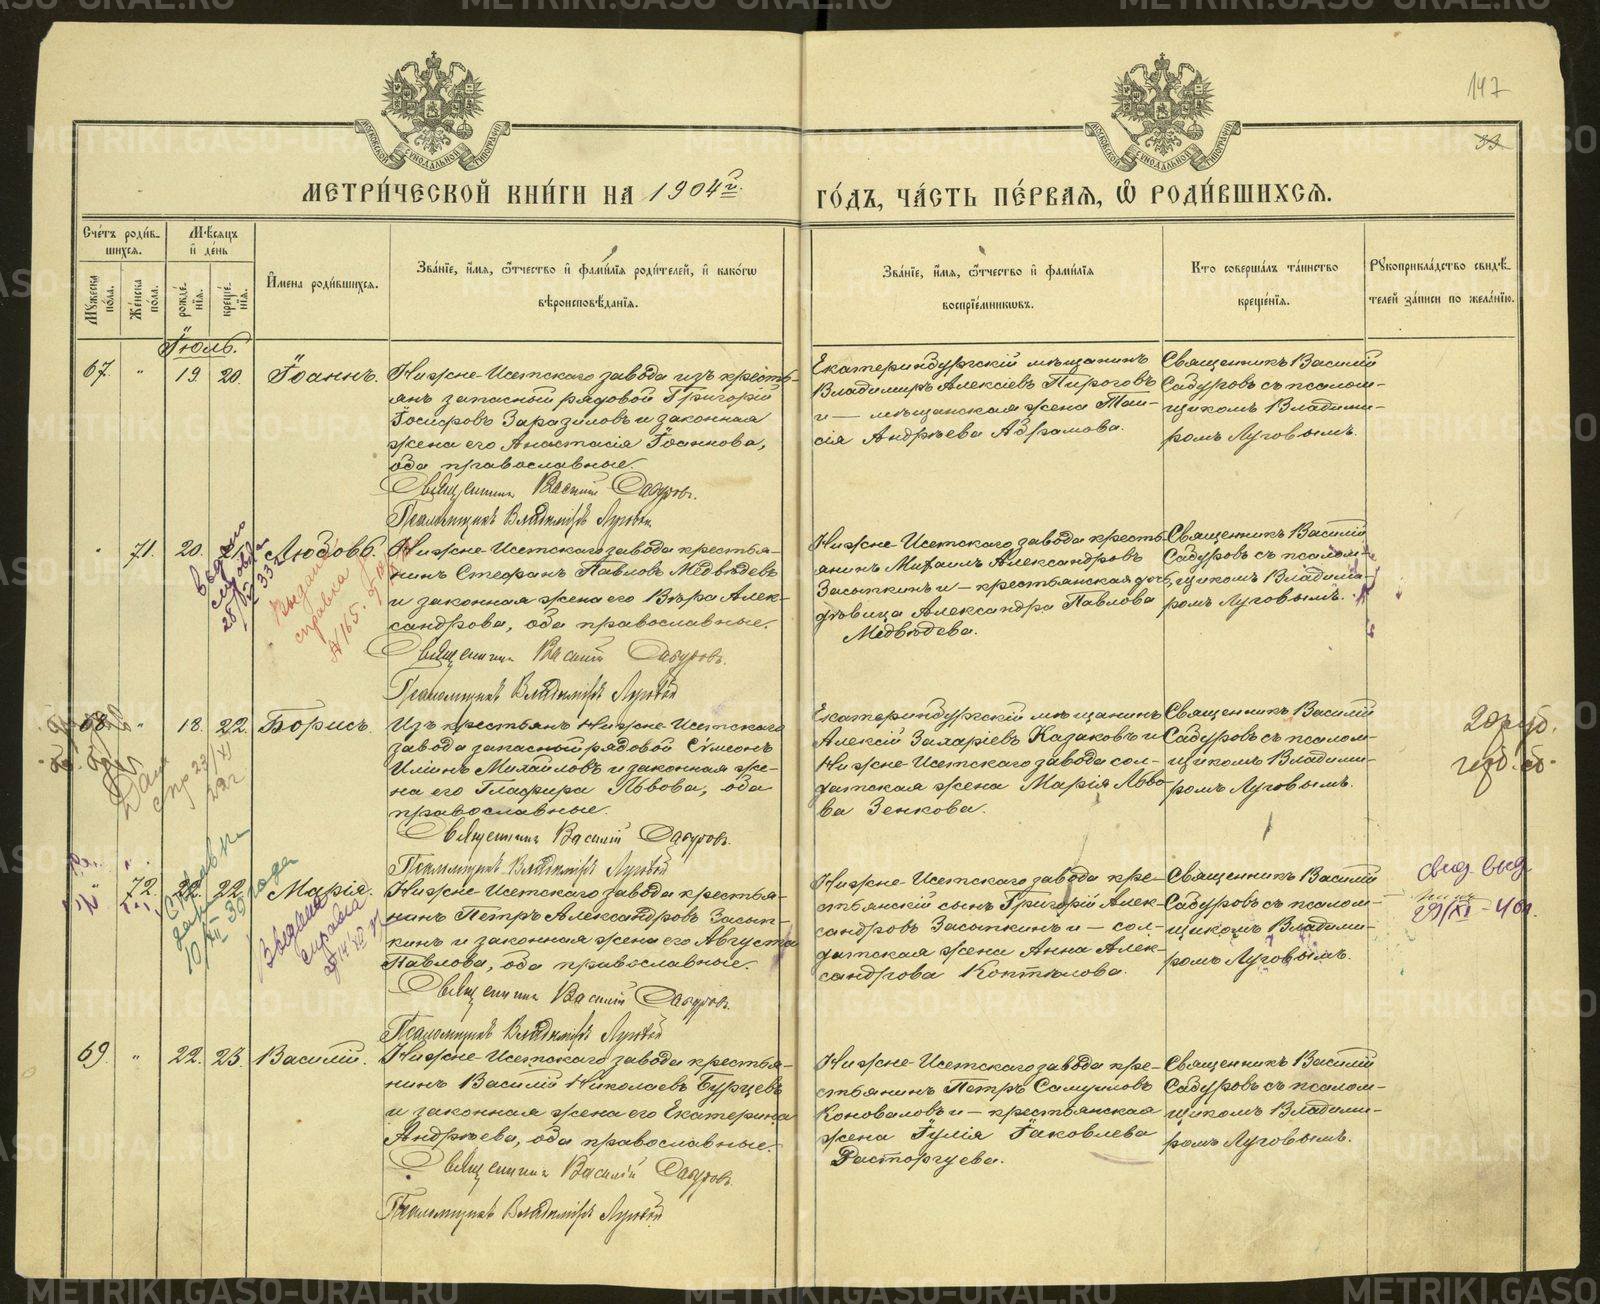 147
33
МОСКОВСКОЙ СѴНОДАЛЬНОЙ ТИПОГРАФІИ
МОСКОВСКОЙ СѴНОДАЛЬНОЙ ТИПОГРАФІИ
МЕТРИ́ЧЕСКОЙ КНИ́ГИ НА 1904 г. ГО́ДЪ, ЧА́СТЬ ПЕ́РВАЯ, Ѿ РОДИ́ВШИХСЯ.
Сче́тъ роди́в-
шихся.
Му́жеска по́ла.
Же́нска по́ла.
Мѣ́сяцъ
и де́нь
рожде́нїя.
креще́нїя.
Имена роди́вшихся.
Зва́нїе, и́мя, ѻ́тчество и фами́лїя роди́телей, и како́гѡ
вѣроисповѣ́данїя.
Зва́нїе, и́мя, ѻ́тчество и фами́лїя
воспрїе́мникѡвъ.
Кто соверша́лъ та́инство
креще́нїя.
Рукоприкла́дство свидѣ́-
телей за́писи по жела́нїю.
Іюль.
67. " 19. 20. Іоаннъ.
Нижне-Исетскаго завода изъ кресть-
янъ запасный рядовой Григорій
Іосифовъ Заразиловъ и законная
жена его Анастасія Іоаннова,
оба православные.
Священникъ Василій Сабуровъ.
Псаломщикъ Владиміръ Луговой
Екатеринбургскій мѣщанинъ
Владимиръ Алексіевъ Пироговъ
и — мѣщанская жена Таи-
сія Андрѣева Абрамова.
Священникъ Василій
Сабуровъ съ псалом-
щикомъ Владими-
ромъ Луговымъ.
" 71. 20. Любовь.
Нижне-Исетскаго завода крестья-
нинъ Стефанъ Павловъ Медвѣдевъ
и законная жена его Вѣра Алек-
сандрова, оба православные.
Священникъ Василій Сабуровъ.
Псаломщикъ Владиміръ Луговой
Нижне-Исетскаго завода кресть-
янинъ Михаилъ Александровъ
Засыпкинъ и — крестьянская дочь,
дѣвица Александра Павлова
Медвѣдева.
Священникъ Василій
Сабуровъ съ псалом-
щикомъ Владими-
ромъ Луговымъ.
выдана
справка
№ 165.
68. " 18. 22. Борисъ.
Изъ крестьянъ Нижне-Исетскаго
завода запасный рядовой Сѵмеонъ
Илiинъ Михайловъ и законная же-
на его Глафира Львова, оба
православные.
Священникъ Василій Сабуровъ.
Псаломщикъ Владиміръ Луговой
Екатеринбургскій мѣщанинъ
Алексій Захаріевъ Казаковъ и
Нижне-Исетскаго завода сол-
датская жена Марія Льво-
ва Зенкова.
Священникъ Василій
Сабуровъ съ псалом-
щикомъ Владими-
ромъ Луговымъ.
20 руб.
Дана
спр 23/XI
22 г
72. 22. 22. Марія.
Нижне-Исетскаго завода крестья-
нинъ Петръ Александровъ Засып-
кинъ и законная жена его Августа
Павлова, оба православные.
Священникъ Василій Сабуровъ.
Псаломщикъ Владиміръ Луговой
Нижне-Исетскаго завода кре-
стьянскій сынъ Григорій Алек-
сандровъ Засыпкинъ и — сол-
датская жена Анна Алек-
сандрова Коптѣлова.
Священникъ Василій
Сабуровъ съ псалом-
щикомъ Владими-
ромъ Луговымъ.
Выдана
справка
69. " 22. 23. Василій.
Нижне-Исетскаго завода крестья-
нинъ Василій Николаевъ Бурцевъ
и законная жена его Екатерина
Андрѣева, оба православные.
Священникъ Василій Сабуровъ.
Псаломщикъ Владиміръ Луговой
Нижне-Исетскаго завода кре-
стьянинъ Петръ Самуиловъ
Коноваловъ и — крестьянская
жена Іулія Іаковлева
Расторгуева.
Священникъ Василій
Сабуровъ съ псалом-
щикомъ Владими-
ромъ Луговымъ.
METRIKI.GASO-URAL.RU